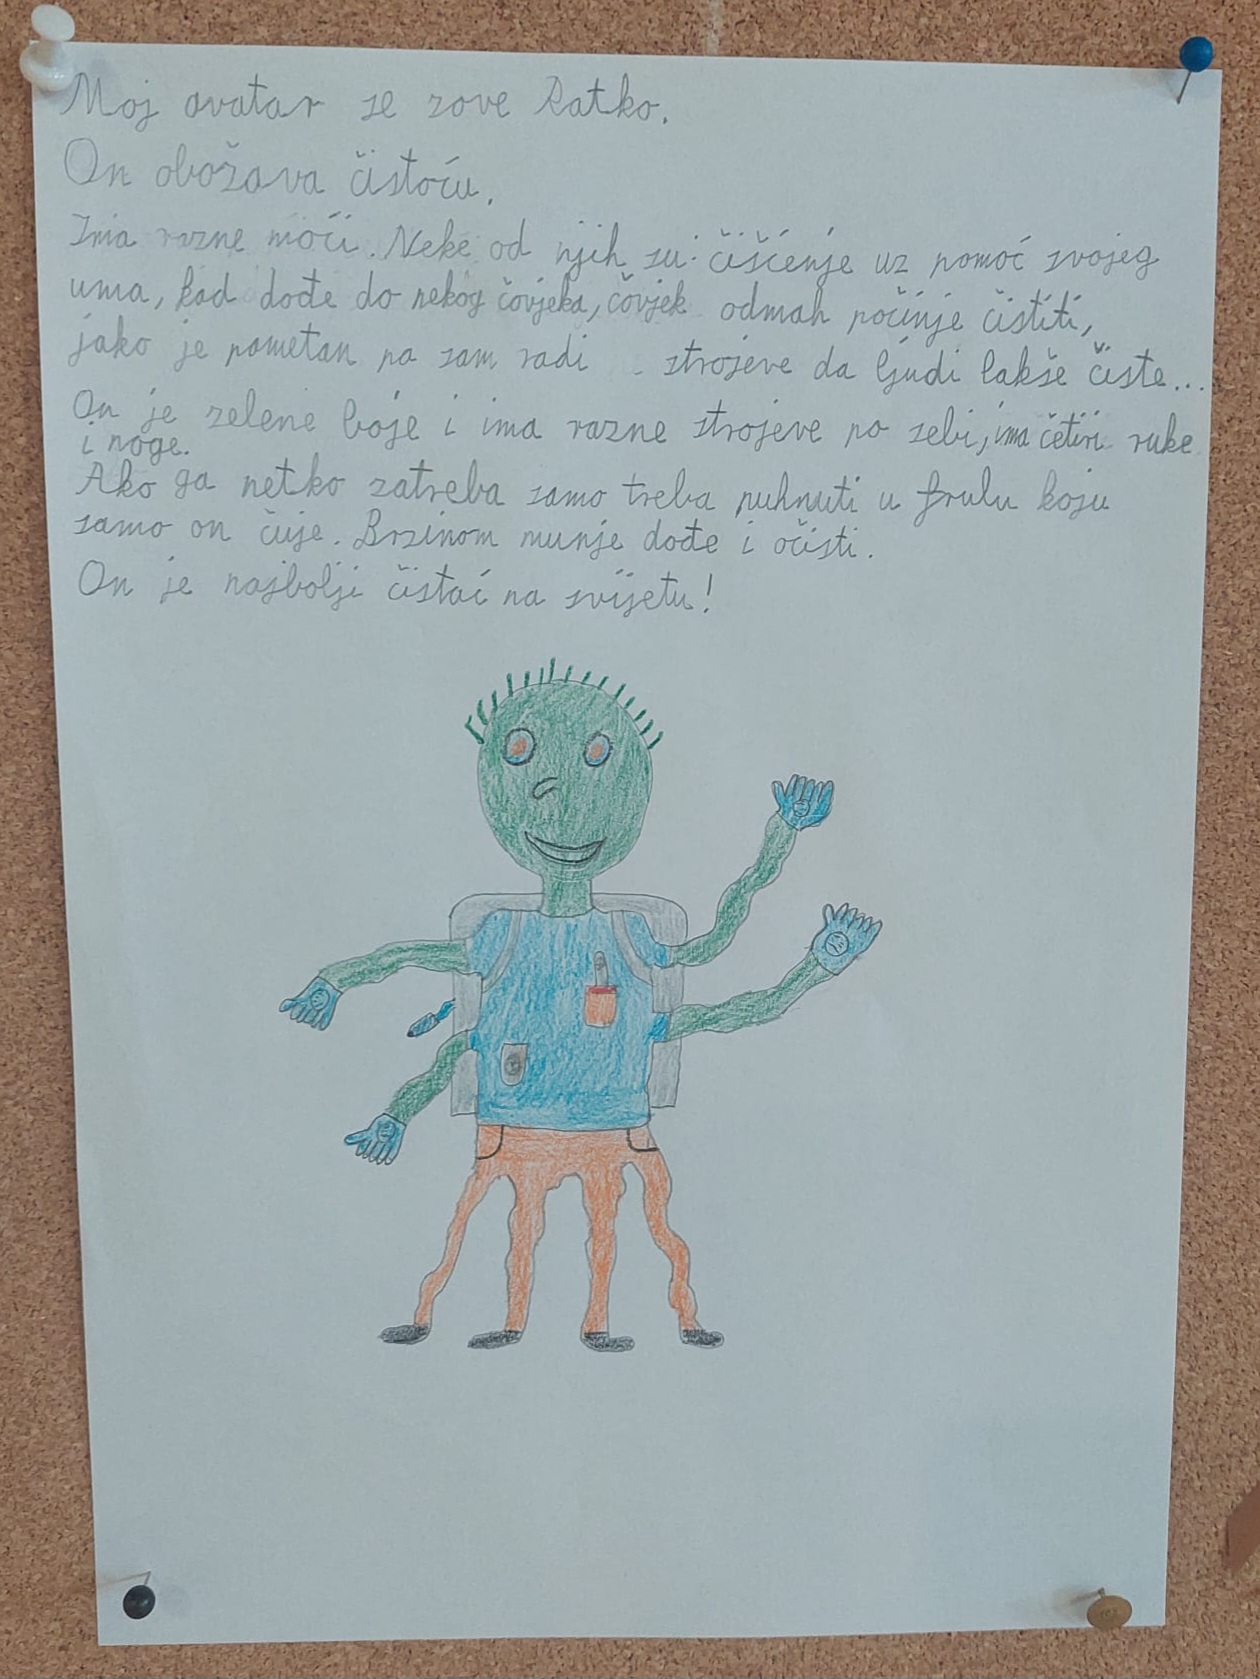 Moj avatar se zove Ratko.
On obožava čistoću.
Ima razne moći. Neke od njih su: čišćenje uz pomoć svojeg
uma, kad dođe do nekog čovjeka, čovjek odmah počinje čistiti,
jako je pametan pa sam radi strojeve da ljudi lakše čiste...
On je zelene boje i ima razne strojeve po sebi, ima četiri ruke
i noge.
Ako ga netko zatreba samo treba puhnuti u frulu koju
samo on čuje. Brzinom munje dođe i očisti.
On je najbolji čistać na svijetu!